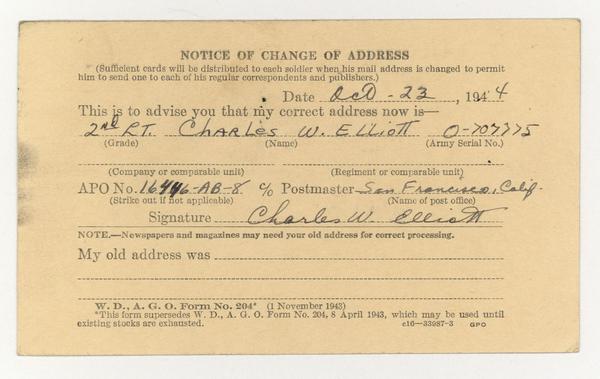 NOTICE OF CHANGE OF ADDRESS
(Sufficient cards will be distributed to each soldier when his mail address is changed to permit
him to send one to each of his regular correspondents and publishers.)
Date Oct - 23, 1944
This is to advise you that my correct address now is—
2nd Lt. Charles W. Elliott O-707775
(Grade) (Name) (Army Serial No.)
(Company or comparable unit) (Regiment or comparable unit)
APO No. 16446-AB-8 c/o Postmaster San Francisco, Calif.
(Strike out if not applicable) (Name of post office)
Signature Charles W. Elliott
NOTE.—Newspapers and magazines may need your old address for correct processing.
My old address was
W. D., A. G. O. Form No. 204* (1 November 1943)
*This form supersedes W. D., A. G. O. Form No. 204, 8 April 1943, which may be used until
existing stocks are exhausted. c16—33987-3 GPO